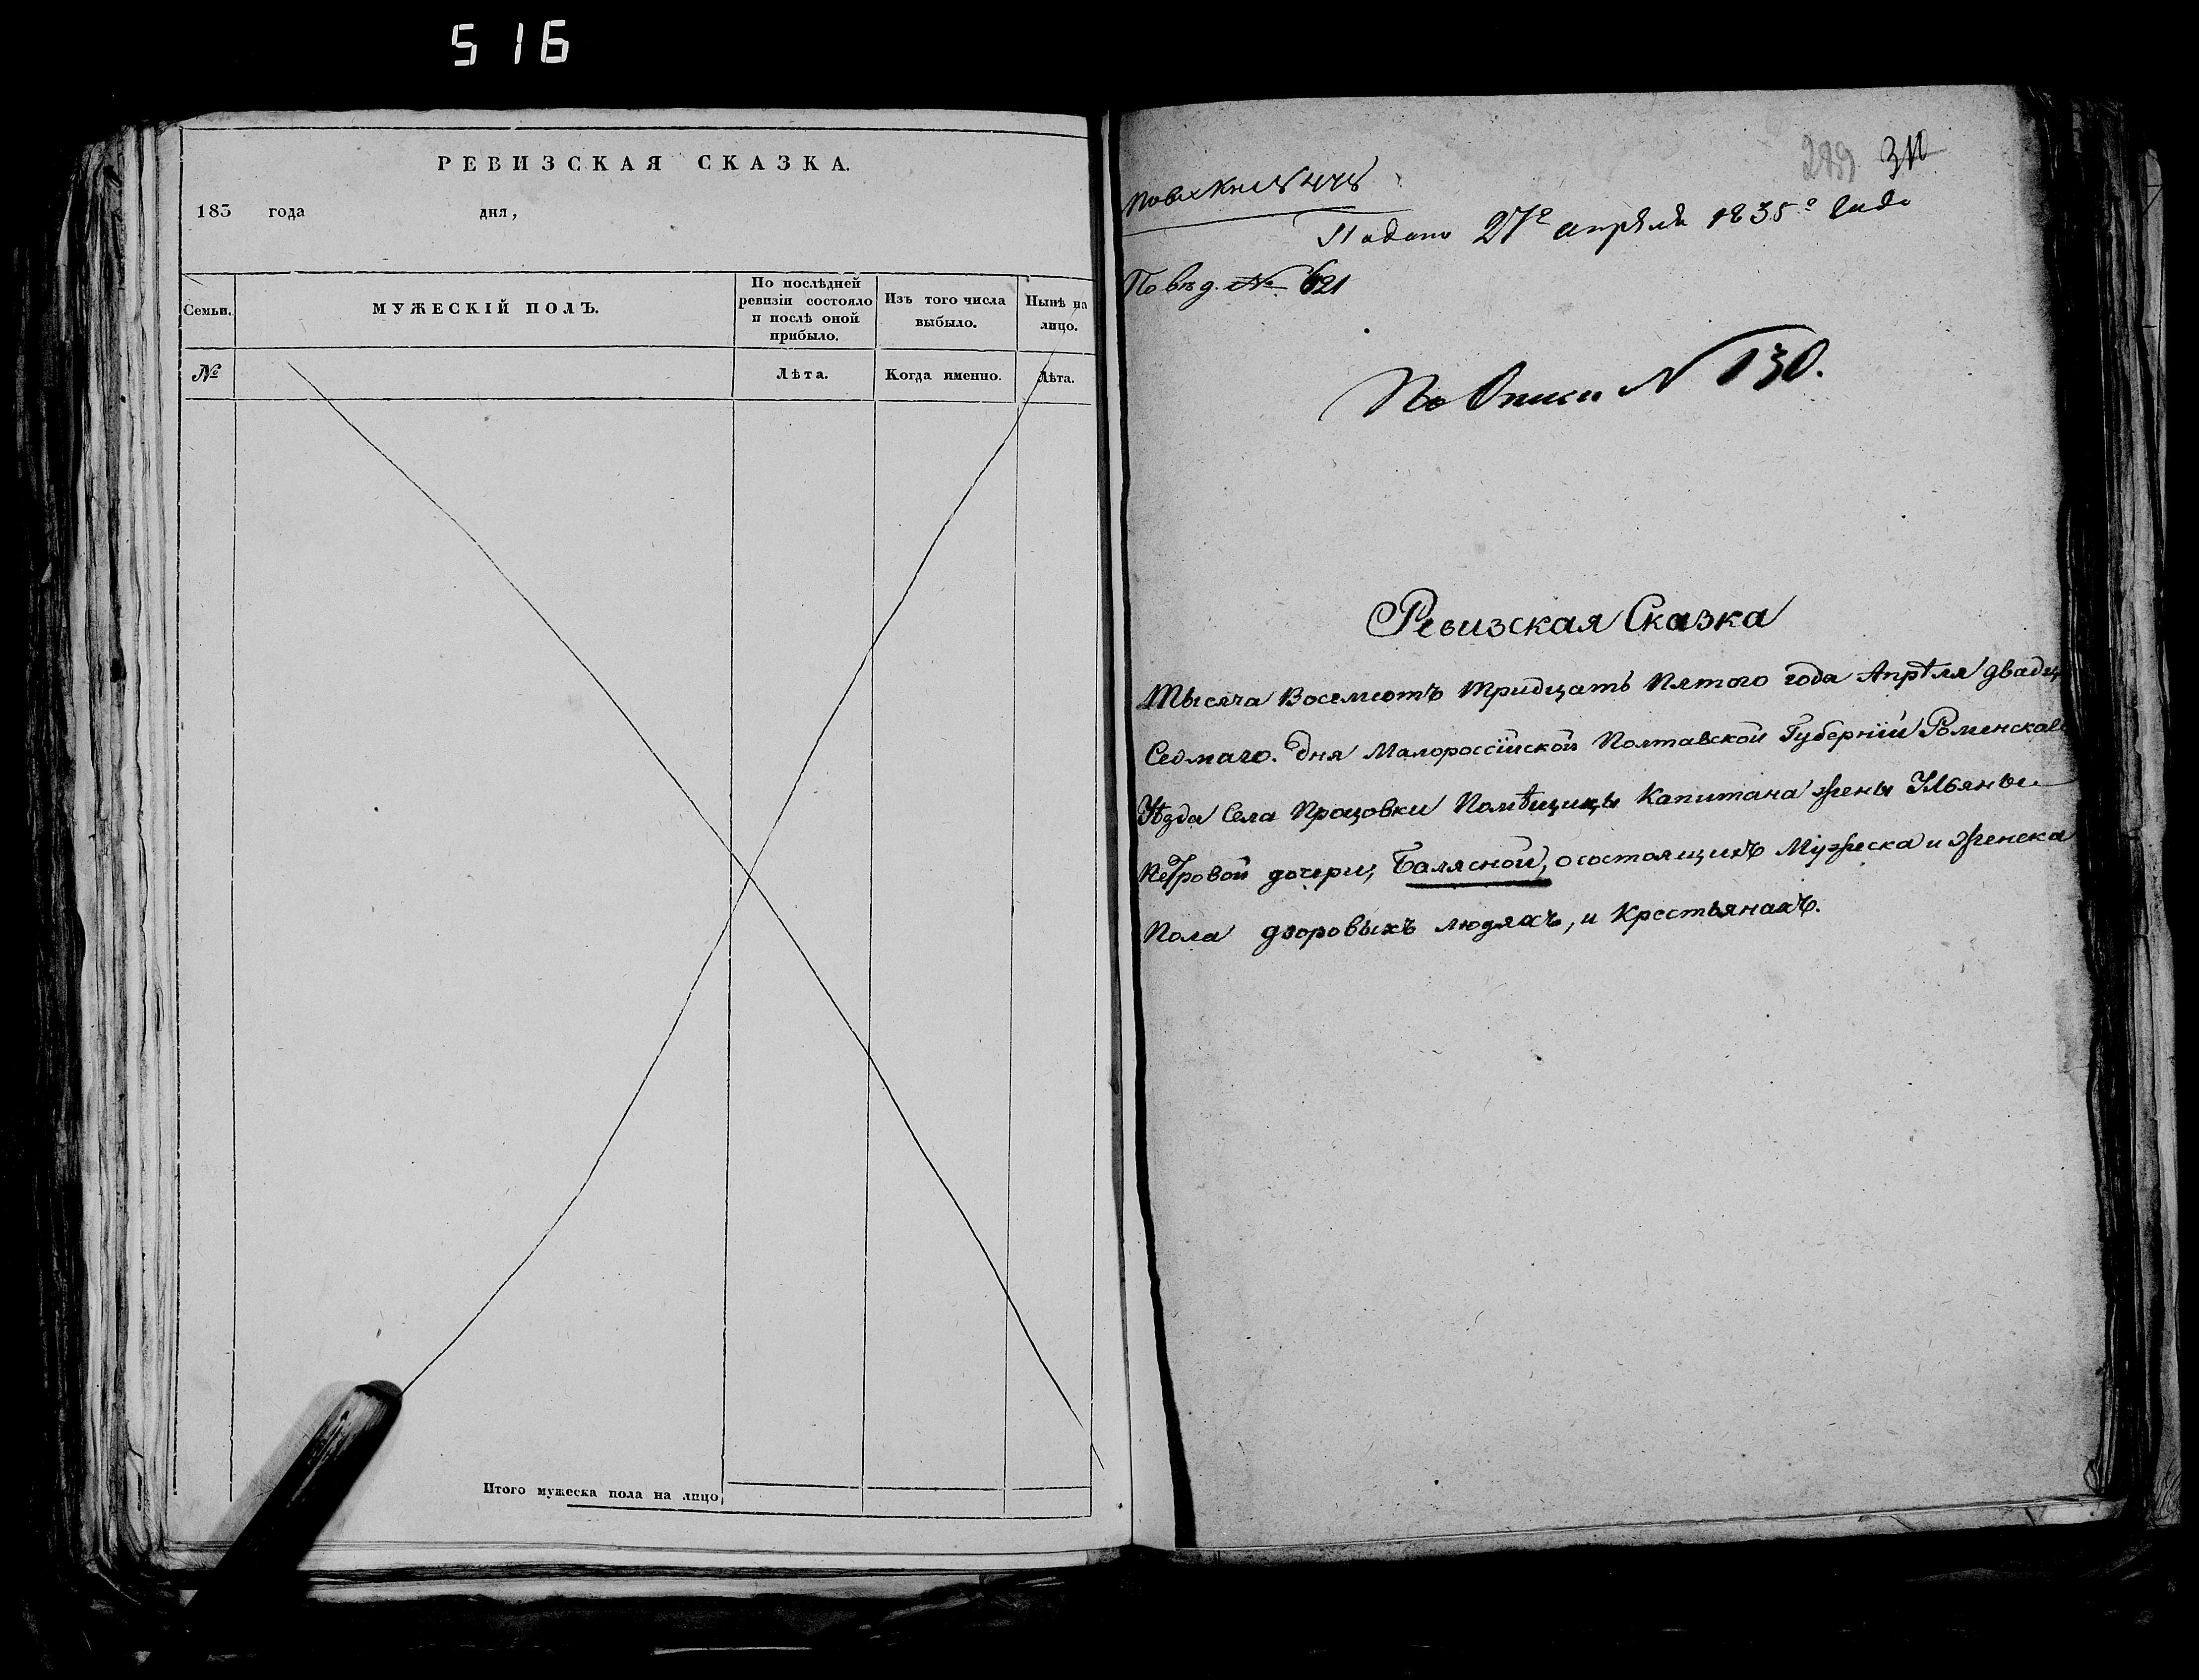 516
РЕВИЗСКАЯ СКАЗКА.
183 года дня,
Семьи.
МУЖЕСКІЙ ПОЛЪ.
По послѣдней
ревизіи состояло
и послѣ оной
прибыло.
Изъ того числа
выбыло.
Нынѣ на
лицо.
№
Лѣта.
Когда именно.
Лѣта.
Итого мужеска пола на лицо,
299
Подано 27го апрѣля 1835го года
По вѣд. № 621
По Описи N 130.
Ревизская Сказка
Тысяча Восемсотъ тридцать Пятого года Апрѣля двадц
Седмаго. дня Малороссійской Полтавской Губерніи Роменскаго
Уѣзда Села Процовки Помѣщицы Капитана жены Ульяны
Петровой дочери, Балясной, о состоящихъ Мужеска и Женска
Пола дворовыхъ людяхъ, и Крестьянахъ.